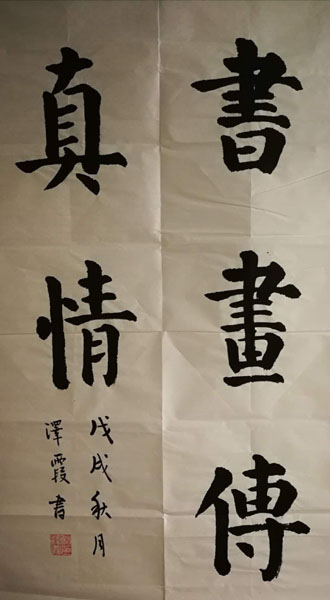 書畫傳
真情
戊戌秋月
澤霞書